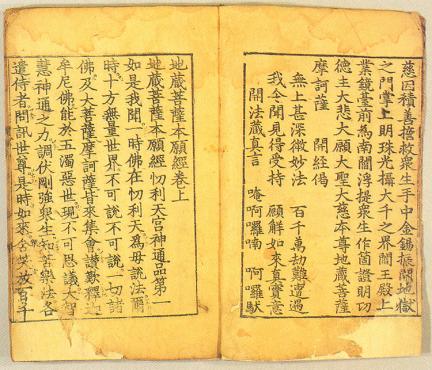 慈因積善擔救衆生手中金錫振開地獄
之門掌上明珠光攝大千之界閻王殿上
業鏡臺前爲南閻浮提衆生作箇證明功
德主大悲大願大聖大慈本尊地蔵菩薩
摩訶薩 開經偈
無上甚深微妙法 百千萬劫難遭遇
我今聞見得受持 願解如來眞實意
開法蔵眞言 唵啊囉喃 啊囉馱
地蔵菩薩本願經卷上
地蔵菩薩本願經忉利天宮神通品第一
如是我聞一時佛在忉利天爲母說法爾
時十方無量世界不可說不可說一切諸
佛及大菩薩摩訶薩皆來集會讃歎釋迦
牟尼佛能於五濁惡世現不可思議大智
慧神通之力調伏剛強衆生知苦樂法各
遣侍者問訊世尊是時如來含笑放百千